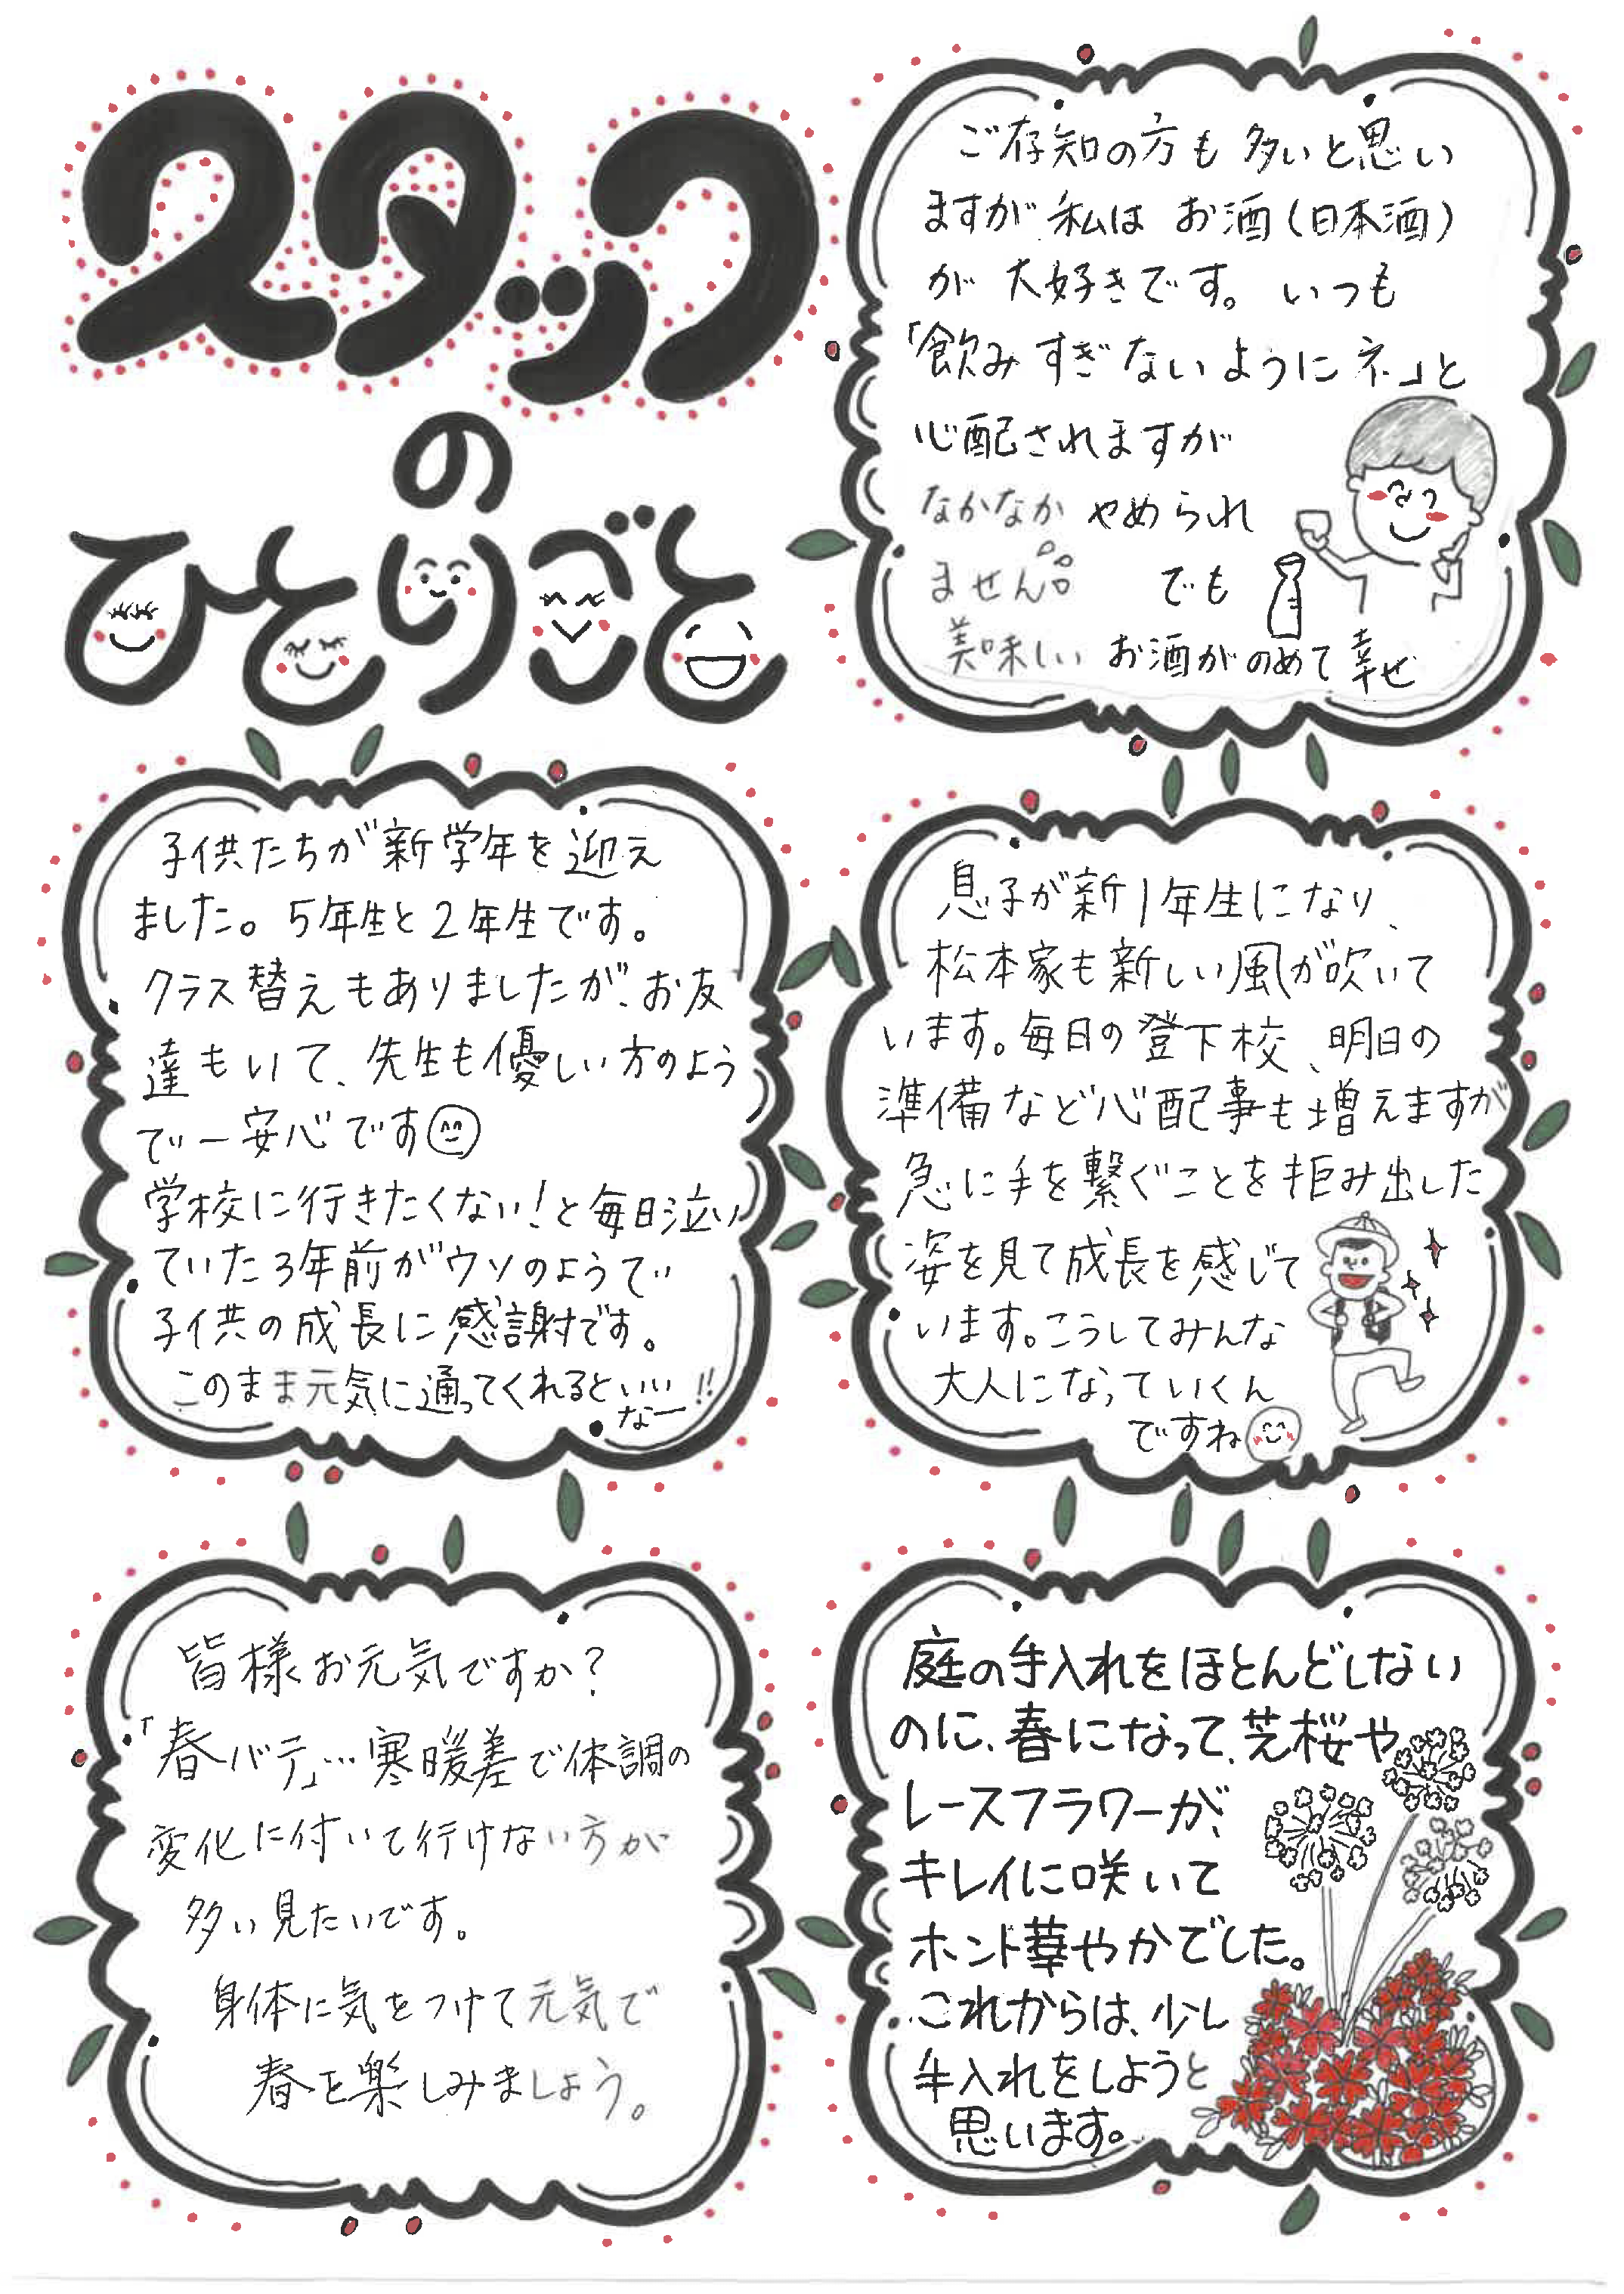 スタッフ
の
ひとりごと
ご存知の方も多いと思い
ますが私は お酒(日本酒)
が 大好きです。いつも
「飲みすぎないようにネ」と
心配されますが
なかなか やめられ
ません でも
美味しい お酒がのめて幸せ
子供たちが新学年を迎え
ました。5年生と2年生です。
クラス替えもありましたが、お友
達もいて、先生も優しい方のよう
で一安心です
学校に行きたくない!と毎日泣い
ていた3年前がウソのようで
子供の成長に感謝です。
このまま元気に通ってくれるといい
なー!!
息子が新1年生になり、
松本家も新しい風が吹いて
います。毎日の登下校、明日の
準備など心配事も増えますが
急に手を繋ぐことを拒み出した
姿を見て成長を感じて
います。こうしてみんな
大人になっていくん
ですね
皆様お元気ですか?
「春バテ」…寒暖差で体調の
変化に付いて行けない方が
多い見たいです。
身体に気をつけて元気で
春を楽しみましょう。
庭の手入れをほとんどしない
のに、春になって、芝桜や
レースフラワーが、
キレイに咲いて
ホント華やかでした。
これからは、少し
手入れをしようと
思います。